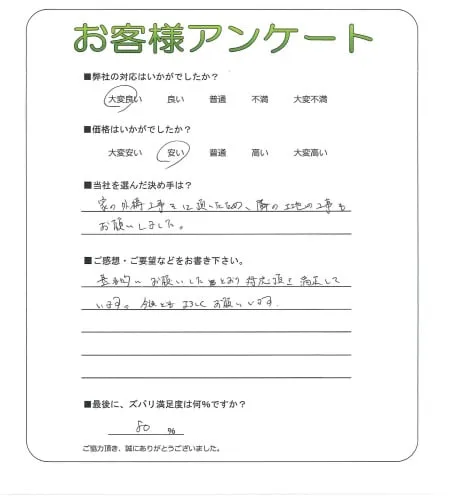 お客様アンケート
■弊社の対応はいかがでしたか?
大変良い 良い 普通 不満 大変不満
■価格はいかがでしたか?
大変安い 安い 普通 高い 大変高い
■当社を選んだ決め手は?
家の外構工事をに頂いたため、隣の土地の工事も
お願いしました。
■ご感想・ご要望などをお書き下さい。
基本的にお願いしたとおり対応頂き満足して
います。今後ともよろしくお願いします。
■最後に、ズバリ満足度は何%ですか?
80 %
ご協力頂き、誠にありがとうございました。